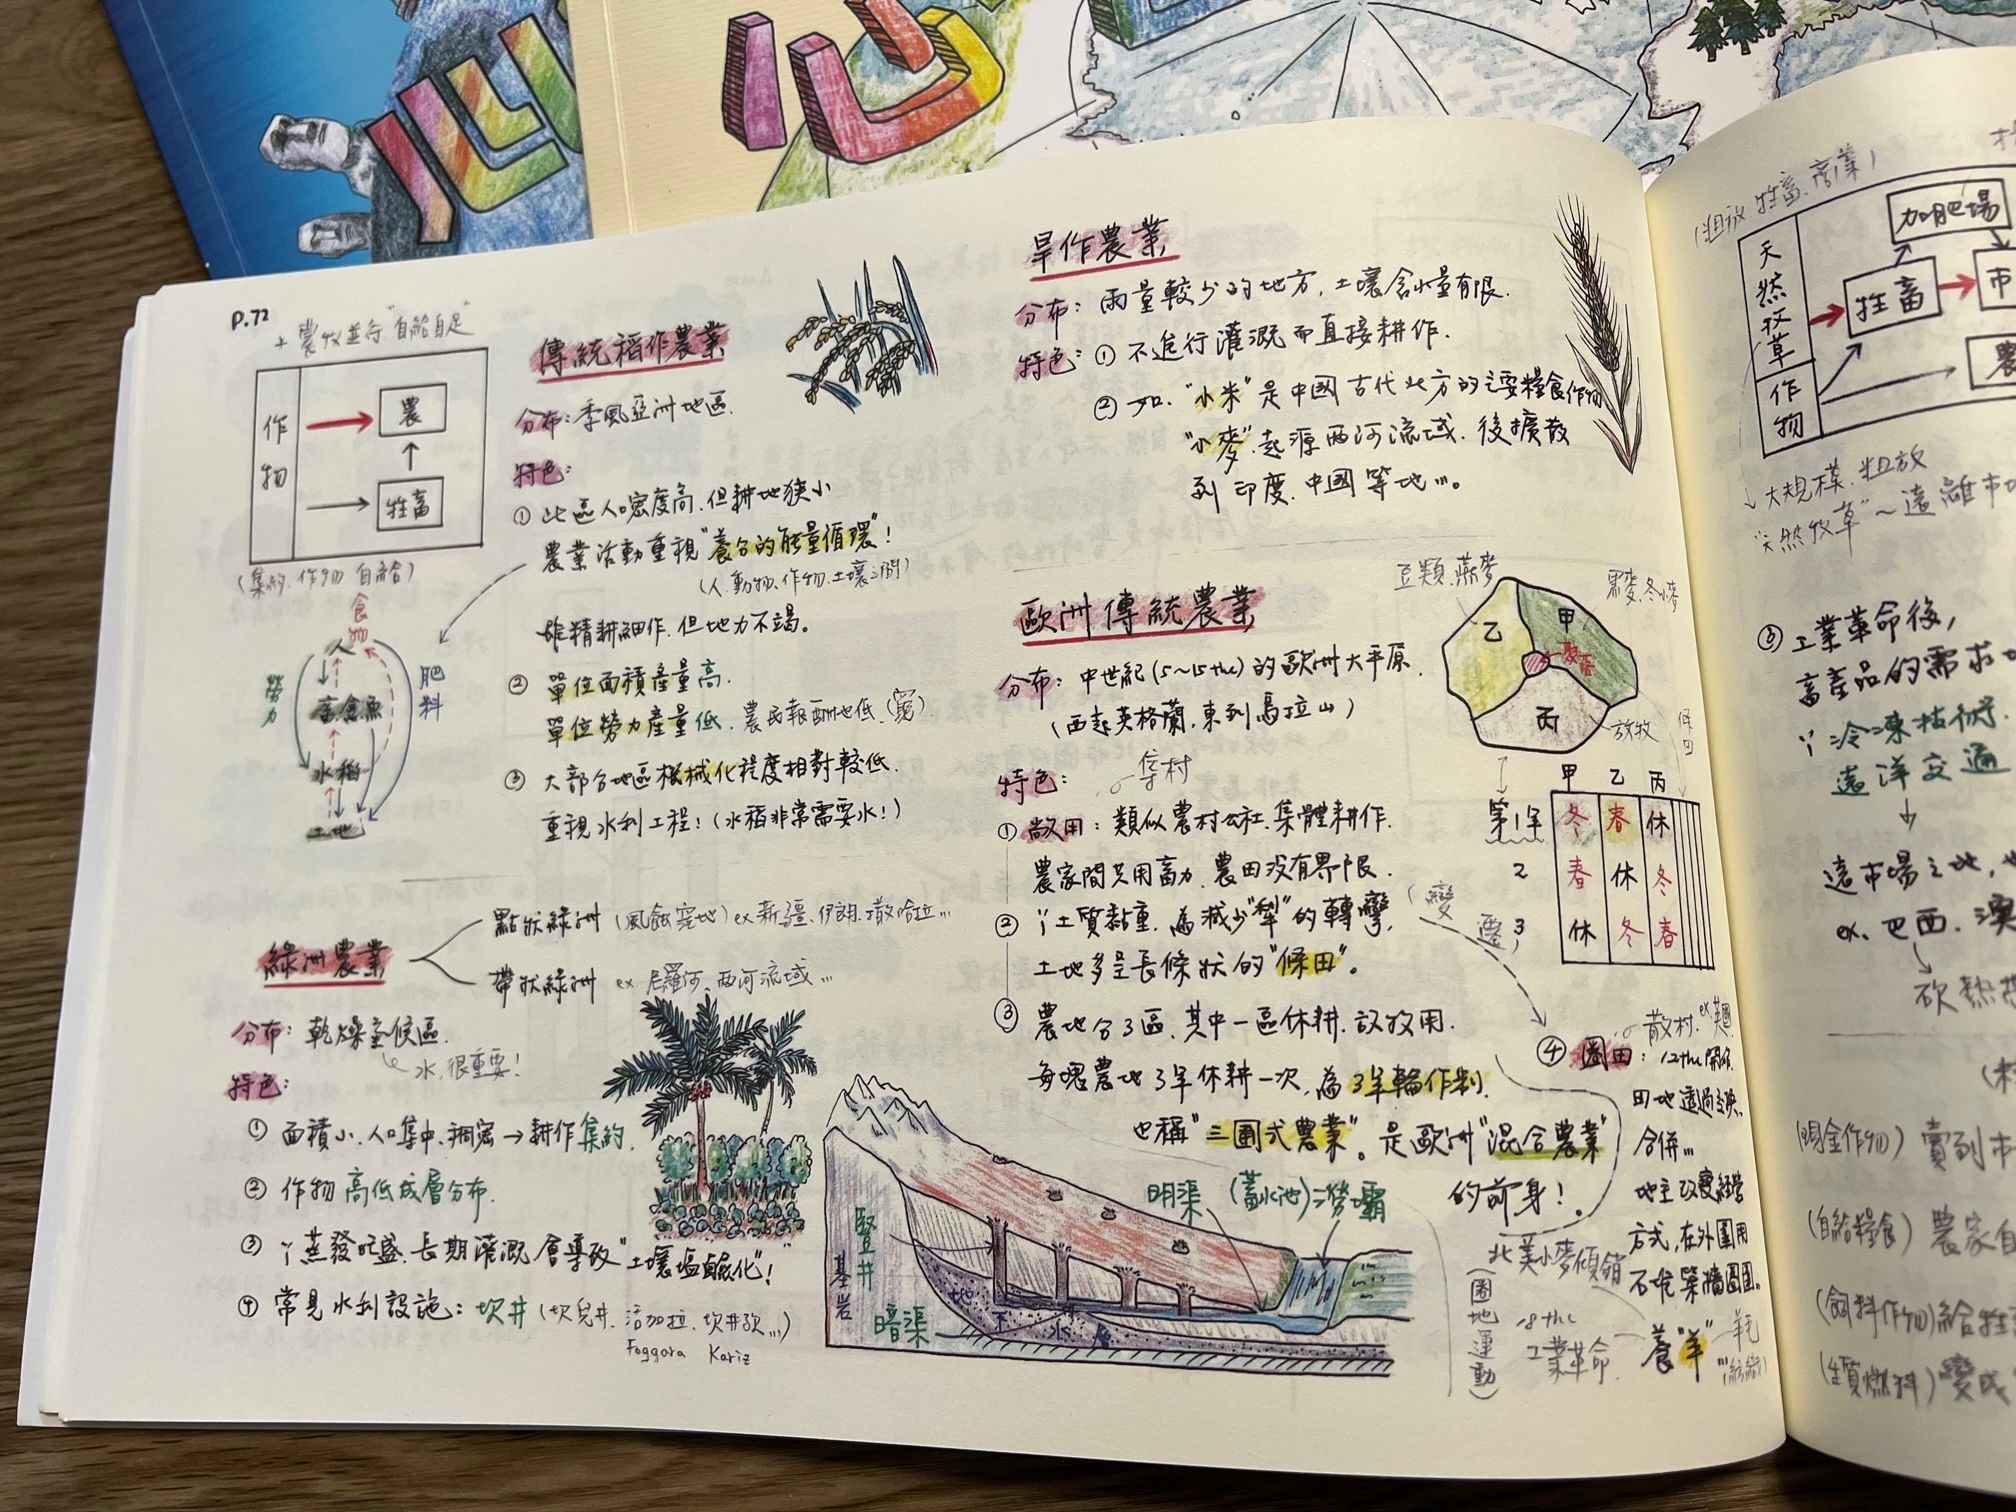 P.72
+ 農牧並行"自給自足"
作物
農
牲畜
(集約.作物.自給)
食物
人
勞力
肥料
畜.禽.魚
水稻
土地
傳統稻作農業
分布:季風亞洲地區.
特色:
① 此區人口密度高.但耕地狹小
農業活動重視"養分的能量循環"!
(人.動物.作物.土壤之間)
雖精耕細作.但地力不竭。
② 單位面積產量高.
單位勞力產量低.農民報酬也低.(窮).
③ 大部分地區機械化程度相對較低.
重視水利工程!(水稻非常需要水!)
綠洲農業
點狀綠洲(風蝕窪地) ex 新疆.伊朗.撒哈拉…
帶狀綠洲 ex 尼羅河.兩河流域…
分布:乾燥氣候區.
水.很重要!
特色:
① 面積小.人口集中.稠密→耕作集約.
② 作物高低成層分布.
③ ∵蒸發旺盛.長期灌溉會導致"土壤塩鹼化"!
④ 常見水利設施:坎井(坎兒井.
活加拉.坎井孜…)
Foggara Kariz
旱作農業
分布:雨量較少的地方.土壤含水量有限.
特色:① 不進行灌溉而直接耕作.
② 如."小米"是中國古代北方的主要糧食作物
"小麥"起源兩河流域.後擴散
到印度.中國等地…。
歐洲傳統農業
分布:中世紀(5~15thc)的歐洲大平原.
(西起英格蘭,東到烏拉山)
特色:
集村
① 敞田:類似農村公社.集體耕作.
農家間共用畜力.農田沒有界限.
② ∵土質黏重.為減少"犁"的轉彎,
土地多呈長條狀的"條田"。
③ 農地分3區.其中一區休耕.以放牧用.
每塊農地3年休耕一次,為3年輪作制.
也稱"三圃式農業"。是歐洲"混合農業"
的前身!
豆類.燕麥
黑麥.冬小麥
甲
乙
丙
聚落
放牧
條田
甲 乙 丙
第1年 冬 春 休
2 春 休 冬
3 休 冬 春
(變遷)
散村.ex.英國
④ 圈田:12thc開始
田地透過交換.
合併…
地主改變經營
方式,在外圍用
石堆築牆圈圍。
北美小麥傾銷
18thc
工業革命
養"羊"
羊毛
(紡織)
(圈地運動)
明渠
(蓄水池)
豎井
基岩
暗渠
地下水層
(粗放.牲畜.商業)
天然牧草
作物
加肥場
牲畜
市
農
大規模.粗放
"天然牧草"~遠離市
⑤ 工業革命後,
畜產品的需求
∵冷凍技術.
遠洋交通
遠市場之地,
ex.巴西.澳
砍熱
(現金作物)賣到市
(自給糧食)農家自
(飼料作物)給牲
(生質燃料)變成